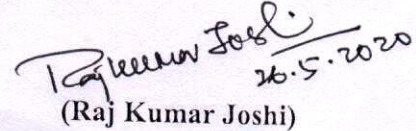 Rajkumar Joshi
26.5.2020
(Raj Kumar Joshi)